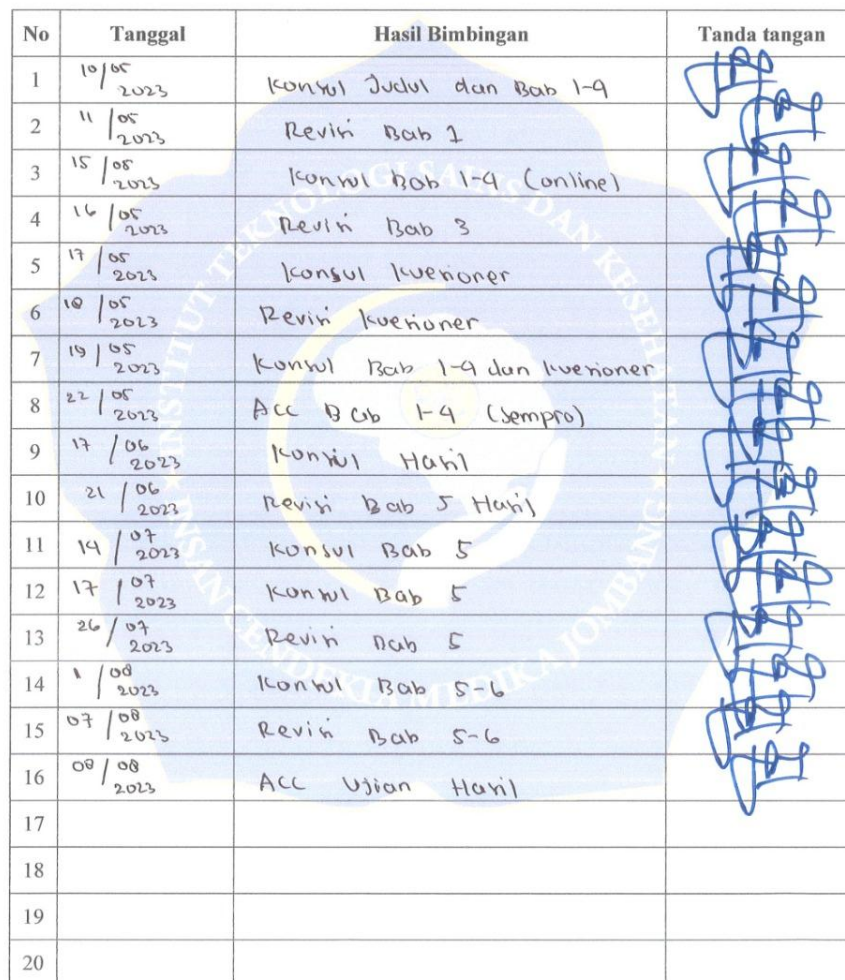 No Tanggal Hasil Bimbingan Tanda tangan
1 10/05 2023 Konsul Judul dan Bab 1-4
2 11/05 2023 Revisi Bab 1
3 15/05 2023 Konsul Bab 1-4 (online)
4 16/05 2023 Revisi Bab 3
5 17/05 2023 Konsul kuesioner
6 18/05 2023 Revisi kuesioner
7 19/05 2023 Konsul Bab 1-4 dan kuesioner
8 22/05 2023 ACC Bab 1-4 (Sempro)
9 17/06 2023 Konsul Hasil
10 21/06 2023 Revisi Bab 5 Hasil
11 14/07 2023 Konsul Bab 5
12 17/07 2023 Konsul Bab 5
13 26/07 2023 Revisi Bab 5
14 1/08 2023 Konsul Bab 5-6
15 07/08 2023 Revisi Bab 5-6
16 08/08 2023 ACC Ujian Hasil
17
18
19
20
INSTITUT TEKNOLOGI SAINS DAN KESEHATAN
INSAN CENDEKIA MEDIKA JOMBANG